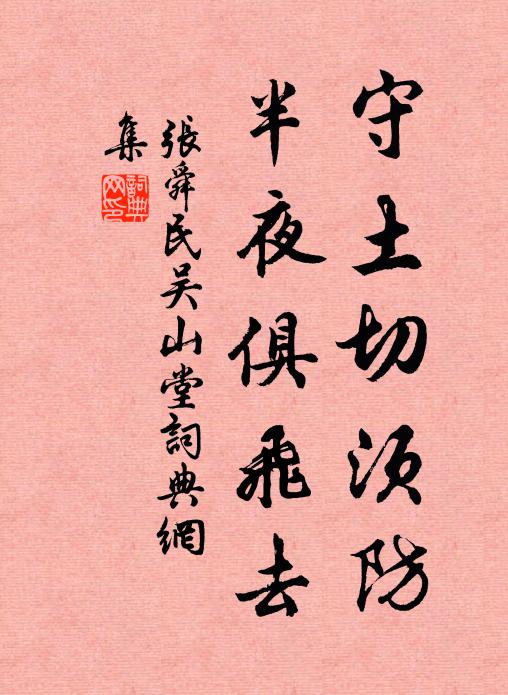 守土切須防
半夜俱飛去
張舜民吴山堂詞典網
集
詞典
网印